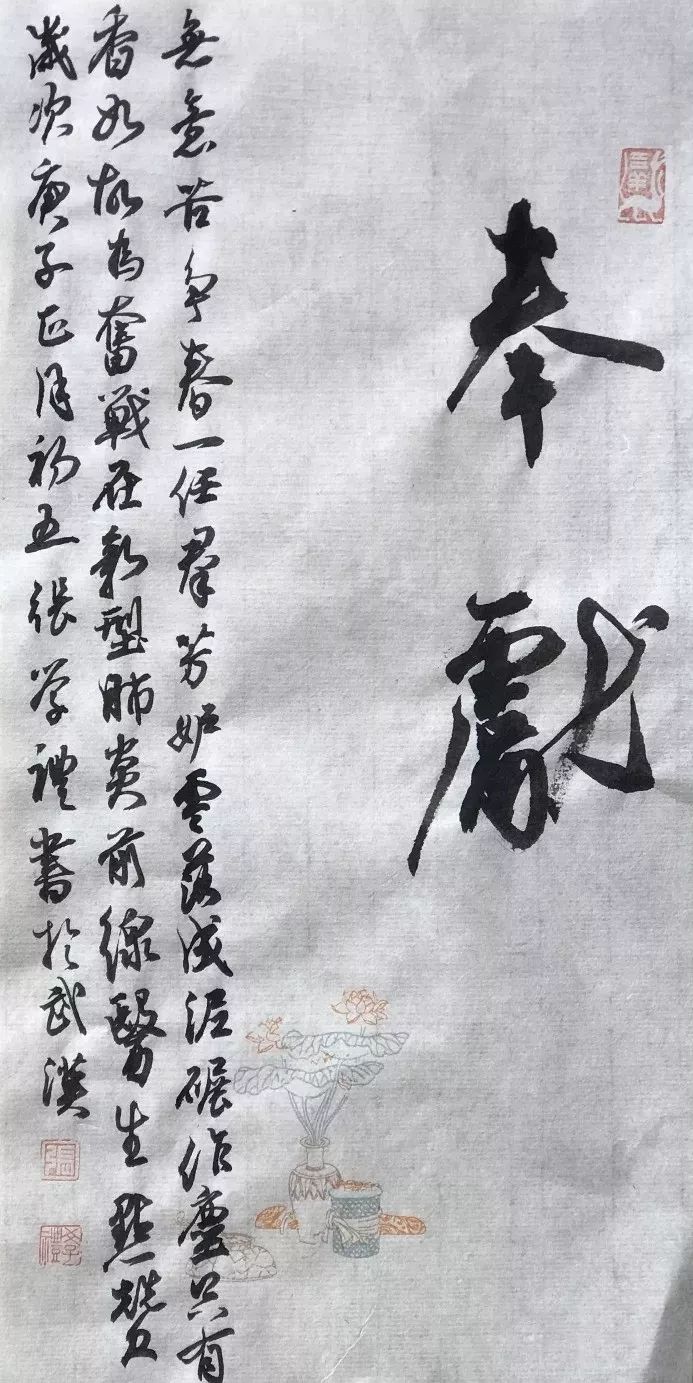 奉獻
無意苦争春一任羣芳妒零落成泥碾作塵只有
香如故為奮戰在新型肺炎前線醫生點贊
歲次庚子正月初五張学禮書於武漢
張
學禮